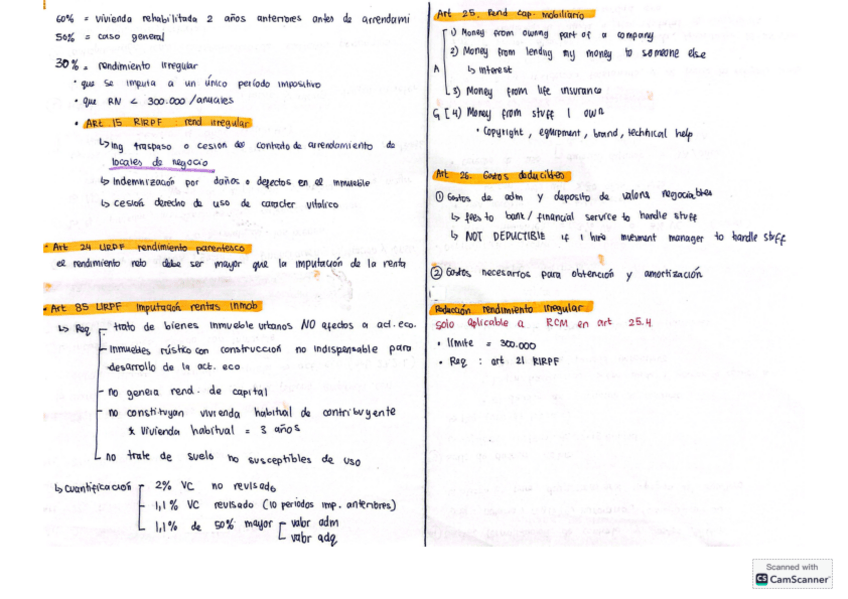 60% = vivienda rehabilitada 2 años anteriores antes de arrendami
50% = caso general
30% = rendimiento irregular
• que se imputa a un único período impositivo
• que RN < 300.000 /anuales
• ART 15 RIRPF : rend irregular
↳ ing traspaso o cesion del contrato de arrendamiento de
locales de negocio
↳ Indemnización por daños o defectos en el inmueble
↳ cesión derecho de uso de caracter vitalicio
• Art 24 LIRPF rendimiento parentesco
el rendimiento neto debe ser mayor que la imputación de la renta
• Art 85 LIRPF Imputación rentas inmob
↳ Req
trato de bienes inmueble urbanos NO afectos a act. eco.
Inmuebles rústico con construccion no indispensable para
desarrollo de la act. eco
no genera rend. de capital
no constituyan vivienda habitual de contribuyente
* Vivienda habitual = 3 años
no trate de suelo no susceptibles de uso
↳ Cuantificación
2% VC no revisado
1,1% VC revisado (10 periodos imp. anteriores)
1,1% de 50% mayor
valor adm
valor adq
Art 25. Rend cap. mobiliario
1) Money from owning part of a company
2) Money from lending my money to someone else
A
↳ interest
3) Money from life insurance
G [ 4) Money from stuff I own
• Copyright, equipment, brand, technical help
Art 26. Gastos deducibles
① Gastos de adm y deposito de valores negociables
↳ fees to bank / financial service to handle stuff
↳ NOT DEDUCTIBLE if I hire investment manager to handle stuff
② Gastos necesarios para obtención y amortización
Reducción rendimiento irregular
solo aplicable a RCM en art 25.4
• límite = 300.000
• Req : art 21 RIRPF
Scanned with
CS CamScanner